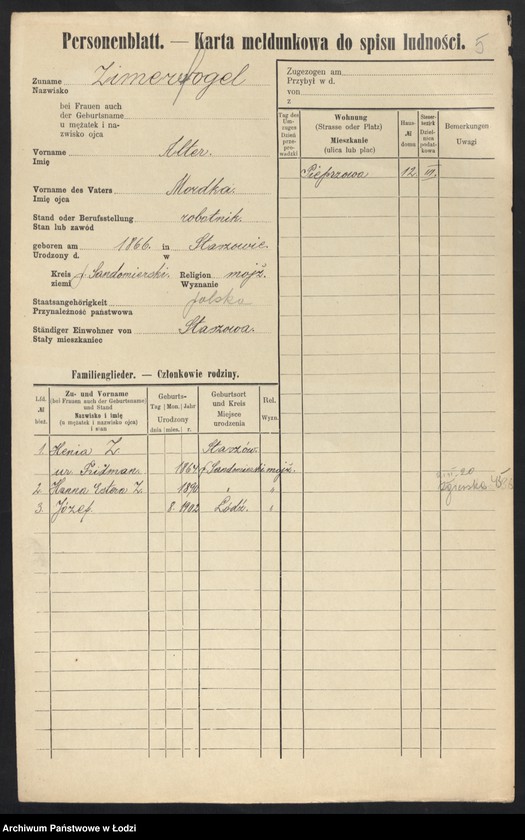 Personenblatt. — Karta meldunkowa do spisu ludności. 5
Zuname Zimerfogel
Nazwisko
bei Frauen auch
der Geburtsname
u mężatek i na-
zwisko ojca
Vorname Alter.
Imię
Vorname des Vaters Mordka.
Imię ojca
Stand oder Berufsstellung robotnik.
Stan lub zawód
geboren am 1866. in Staszowie.
Urodzony d. w
Kreis Sandomierski. Religion mojż.
ziemi Wyznanie
Staatsangehörigkeit polska
Przynależność państwowa
Ständiger Einwohner von Staszowa.
Stały mieszkaniec
Zugezogen am
Przybył w d.
von
z
Tag des Um-zuges Dzień prze-prowadzki
Wohnung (Strasse oder Platz) Mieszkanie (ulica lub plac)
Haus- № domu
Bemerkungen Uwagi
Pieprzowa 12.
Familienglieder. — Członkowie rodziny.
Lfd. № bież.
Zu- und Vorname (bei Frauen auch der Geburtsname) und Stand Nazwisko i imię (u mężatek i nazwisko ojca) i stan
Geburts- Tag Mon. Jahr Urodzony dnia mies. r.
Geburtsort und Kreis Miejsce urodzenia
Rel. Wyzn.
1. Henia Z. Staszów.
ur. 1864 Sandomierski mojż.
2. Hanna Estera Z. 1890 " "
3. Józef. 8. 1902 Łódź. "
Archiwum Państwowe w Łodzi